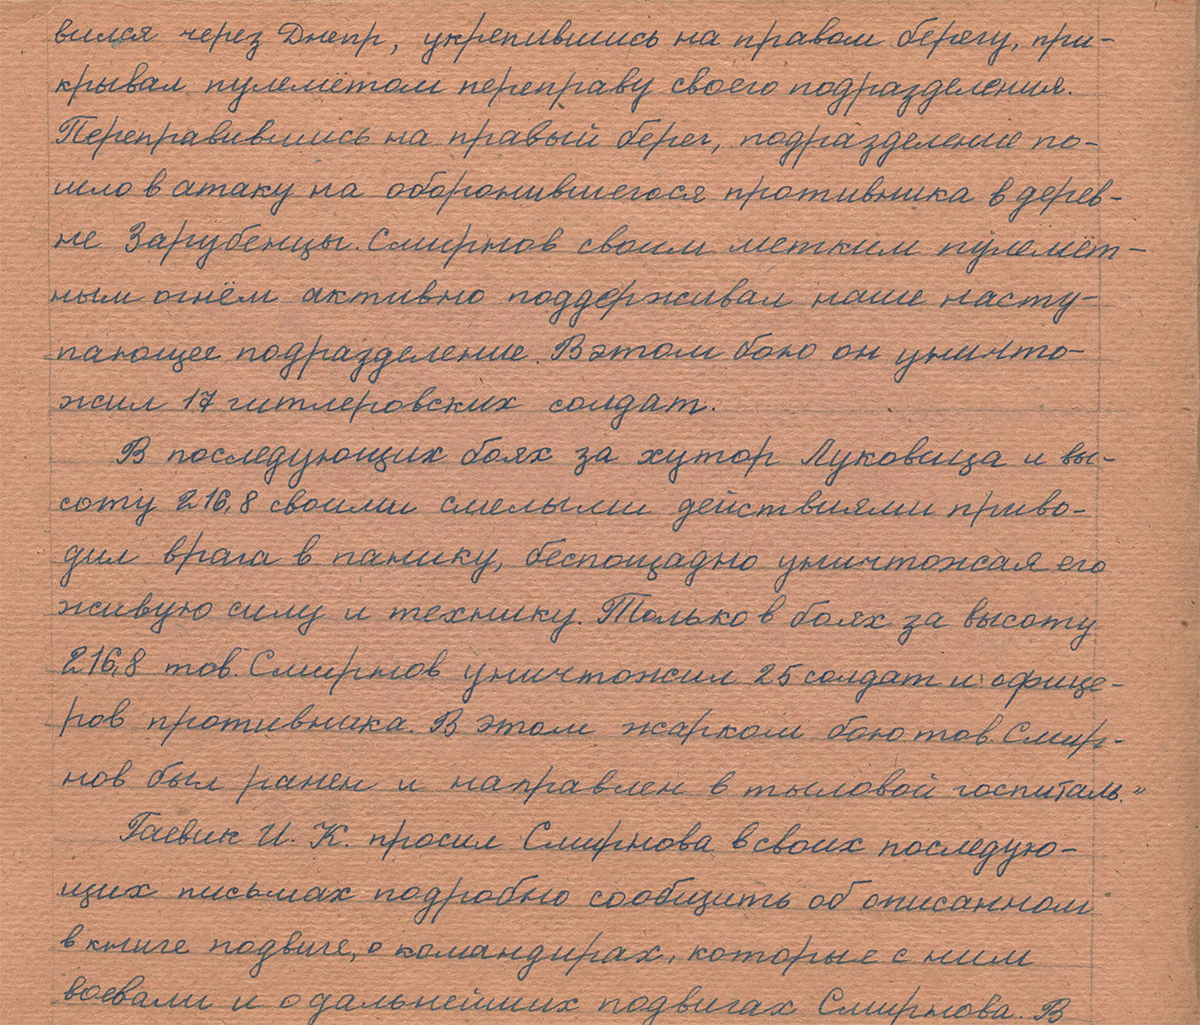 вился через Днепр, укрепившись на правом берегу, при-
крывал пулемётом переправу своего подразделения.
Переправившись на правый берег, подразделение по-
шло в атаку на оборонившегося противника в дерев-
не Зарубенцы. Смирнов своим метким пулемёт-
ным огнём активно поддерживал наше насту-
пающее подразделение. В этом бою он уничто-
жил 17 гитлеровских солдат.
В последующих боях за хутор Луковица и вы-
соту 216,8 своими смелыми действиями приво-
дил врага в панику, беспощадно уничтожая его
живую силу и технику. Только в боях за высоту
216,8 тов. Смирнов уничтожил 25 солдат и офице-
ров противника. В этом жарком бою тов. Смир-
нов был ранен и направлен в тыловой госпиталь."
Гаевик И. К. просил Смирнова в своих последую-
щих письмах подробно сообщить об описанном
в книге подвиге, о командирах, которые с ним
воевали и о дальнейших подвигах Смирнова. В